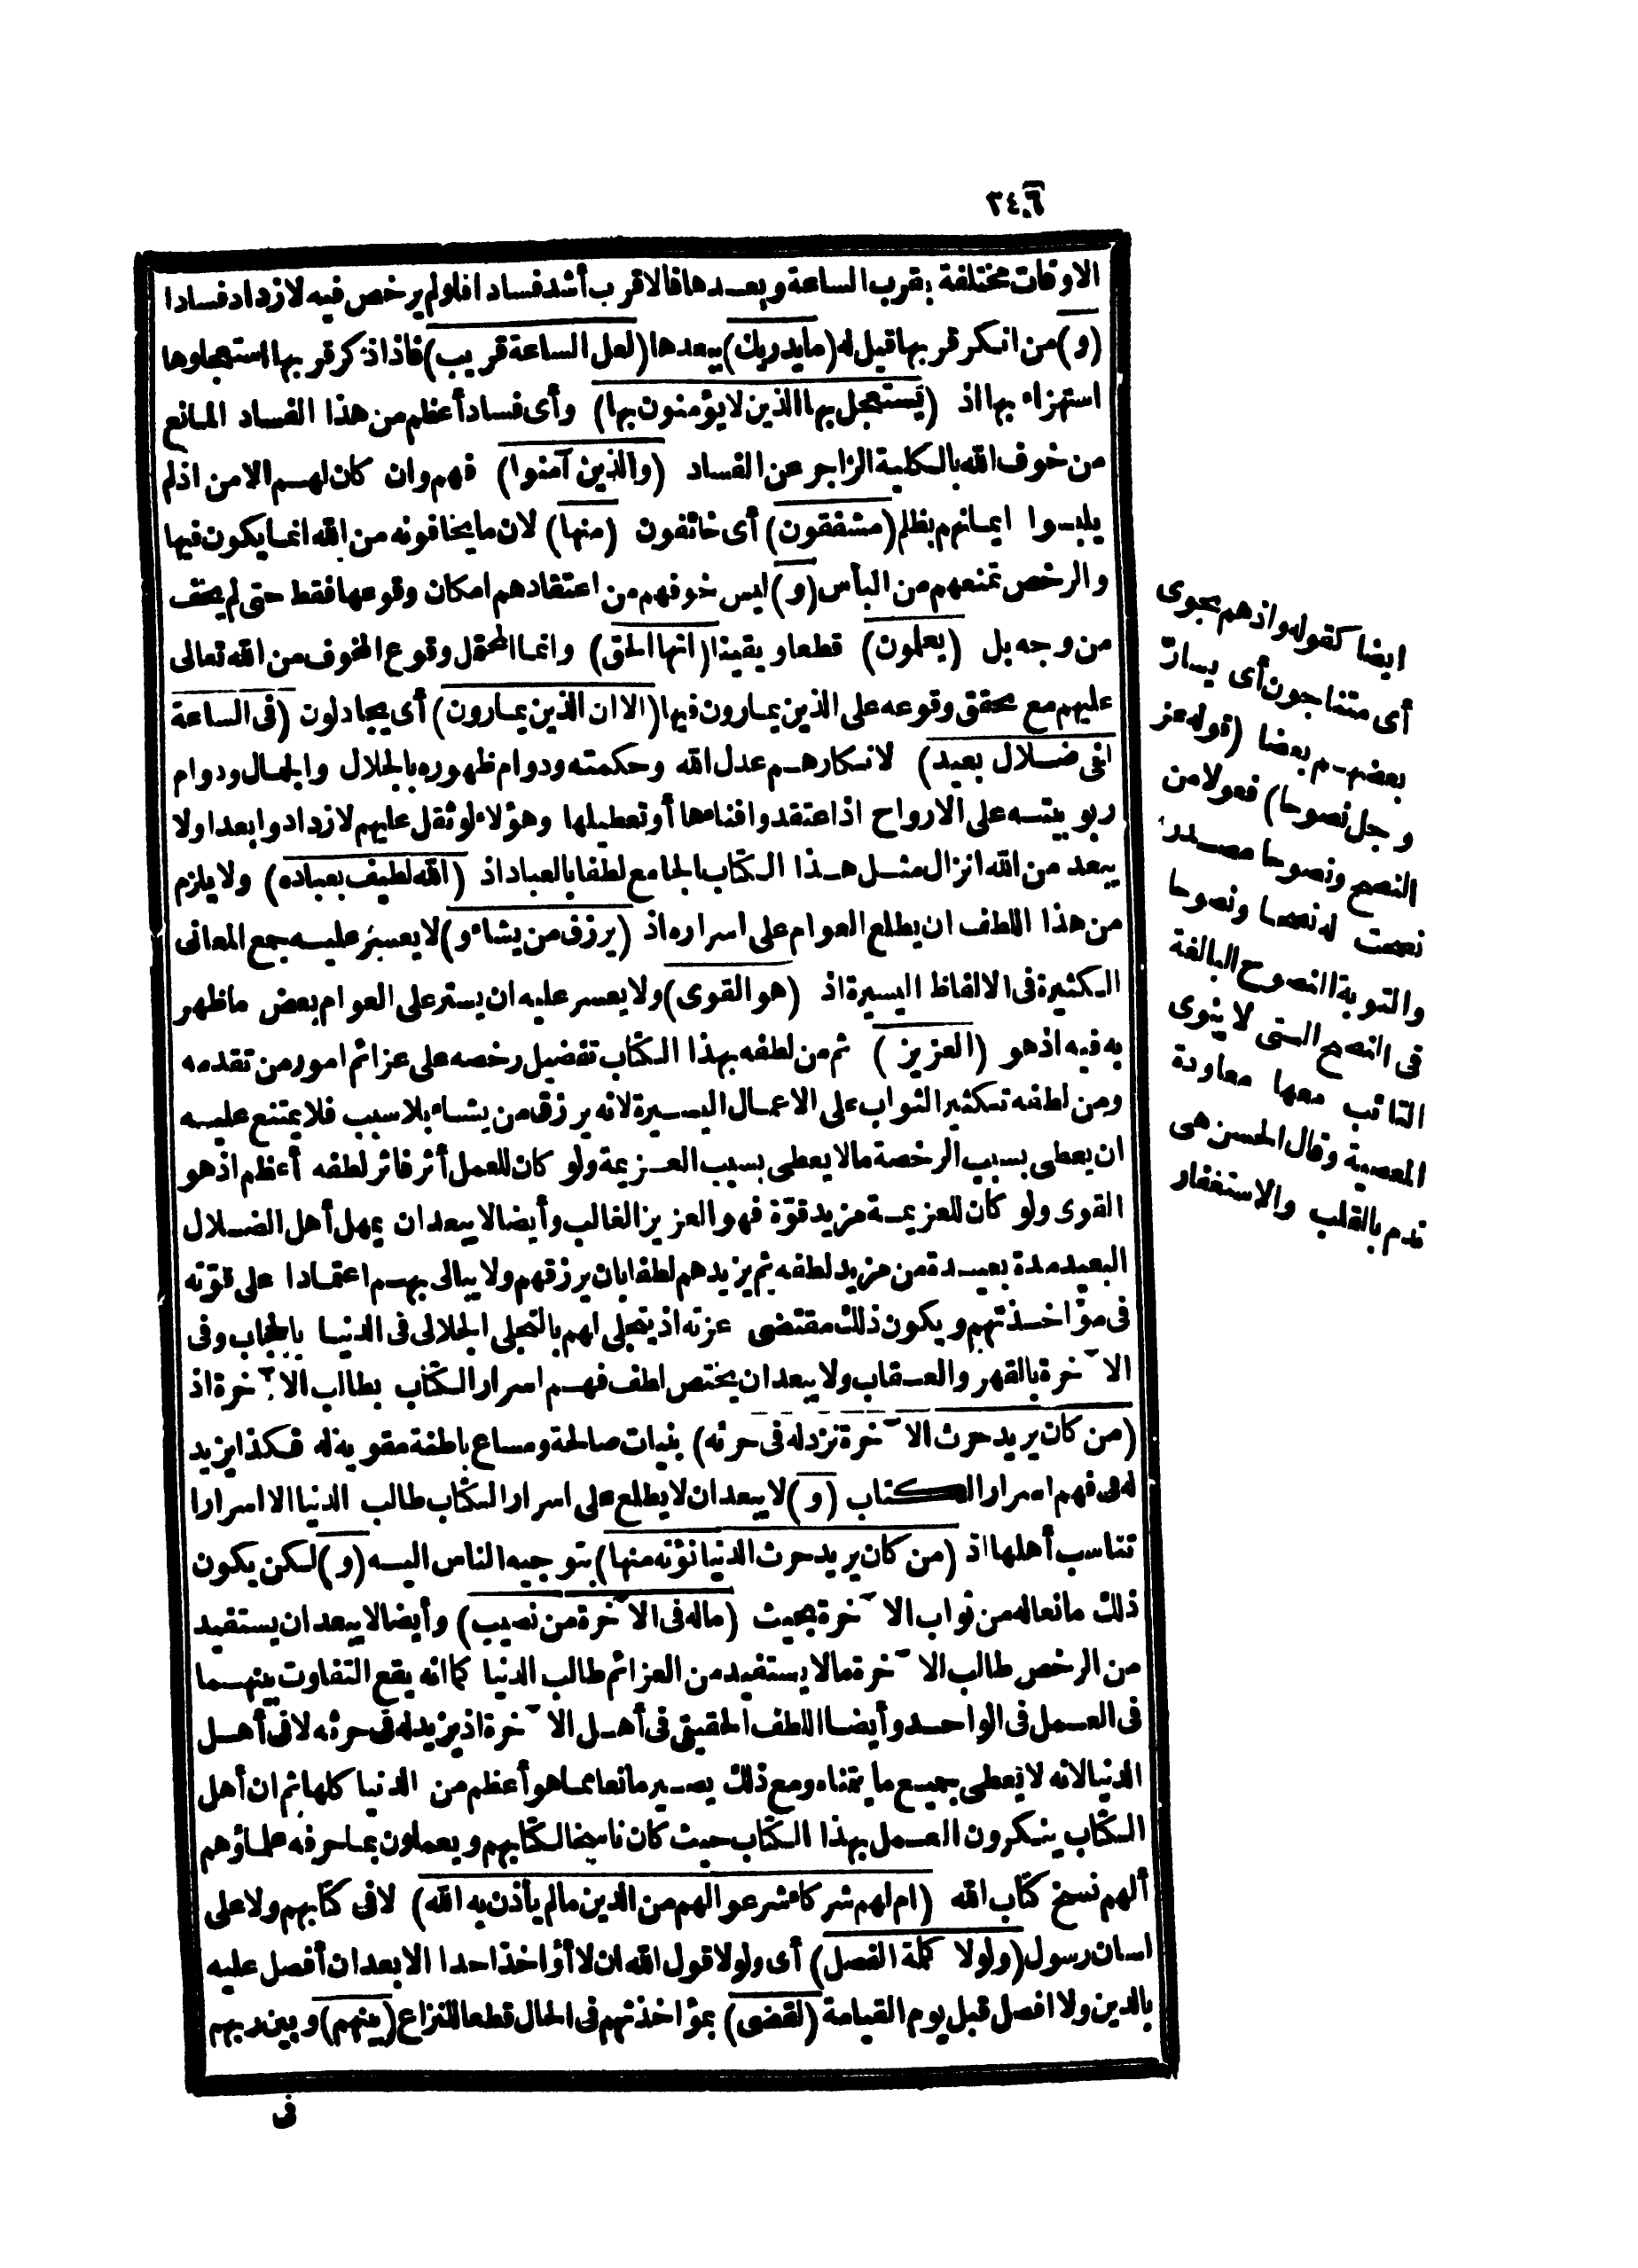 ٢٤٦
الاوقات مختلفة بقرب الساعة وبعدها فالاقرب أشد فسادا فلولم يرخص فيه لازداد فسادا
(و) من انكر قربها قيل له (مايدريك) ببعدها (لعل الساعة قريب) فاذا ذكر قربها استعجلوها
استهزاء بها اذ (يستعجل بها الذين لا يؤمنون بها) وأى فساد أعظم من هذا الفساد المانع
من خوف الله بالكلية الزاجر عن الفساد (والذين آمنوا) فهم وان كان لهم الامن اذلم
يلبسوا ايمانهم بظلم (مشفقون) أى خائفون (منها) لان ما يخافونه من الله انما يكون فيها
والرخص تمنعهم من البأس (و) ليس خوفهم من اعتقادهم امكان وقوعها فقط حتى لم يخف
من وجه بل (يعلمون) قطعا ويقينا (انها الحق) وانما المحتمل وقوع المخوف من الله تعالى
عليهم مع تحقق وقوعه على الذين يمارون فيها (الا ان الذين يمارون) أى يجادلون (فى الساعة
لفى ضلال بعيد) لانكارهم عدل الله وحكمته ودوام ظهوره بالجلال والجمال ودوام
ربوبيته على الارواح اذا عتقدوا فناءها أو تعطيلها وهؤلاء لو ثقل عليهم لازدادوا بعدا ولا
يبعد من الله انزال مثل هذا الكتاب الجامع لطفا بالعباد اذ (الله لطيف بعباده) ولا يلزم
من هذا اللطف ان يطلع العوام على اسراره اذ (يرزق من يشاء و) لا يعسر عليه جمع المعانى
الكثيرة فى الالفاظ اليسيرة اذ (هو القوى) ولا يعسر عليه ان يستر على العوام بعض ماظهر
به فيه اذ هو (العزيز) ثم من لطفه بهذا الكتاب تفضيل رخصه على عزائم امور من تقدمه
ومن لطفه تكثير الثواب على الاعمال اليسيرة لانه يرزق من يشاء بلا سبب فلا يمتنع عليه
ان يعطى بسبب الرخصة مالا يعطى بسبب العزيمة ولو كان للعمل أثر فاثر لطفه أعظم اذ هو
القوى ولو كان للعزيمة مزيد قوّة فهو العزيز الغالب وأيضا لا يبعد ان يمهل أهل الضلال
البعيد مدة بعيدة من مزيد لطفه ثم يزيدهم لطفا بان يرزقهم ولا يبالى بهم اعتمادا على قوّته
فى مؤاخذتهم ويكون ذلك مقتضى عزته اذ يتجلى لهم بالتجلى الجلالى فى الدنيا بالحجاب وفى
الآخرة بالقهر والعقاب ولا يبعد ان يختص لطف فهم اسرار الكتاب بطالب الآخرة اذ
(من كان يريد حرث الآخرة نزد له فى حرثه) بنيات صالحة ومساع باطنة مقوية له فكذا يزيد
له فى فهم اسرار الكتاب (و) لا يبعد ان لا يطلع على اسرار الكتاب طالب الدنيا الا اسرارا
تناسب أهلها اذ (من كان يريد حرث الدنيا نؤته منها) بتوجيه الناس اليه (و) لكن يكون
ذلك مانعا له من ثواب الآخرة بحيث (ماله فى الآخرة من نصيب) وأيضا لا يبعد ان يستفيد
من الرخص طالب الآخرة مالا يستفيد من العزائم طالب الدنيا كما انه يقع التفاوت بينهما
فى العمل فى الواحد وأيضا اللطف الحقيقى فى أهل الآخرة اذ يزيد له فى حرثه لا فى أهل
الدنيا لانه لا تعطى جميع ما يتمناه ومع ذلك يصير مانعا مما هو أعظم من الدنيا كلها ثم ان أهل
الكتاب ينكرون العمل بهذا الكتاب حيث كان ناسخا لكتابهم ويعملون بما حرفه علماؤهم
ألهم نسخ كتاب الله (ام لهم شركاء شرعوا لهم من الدين مالم يأذن به الله) لا فى كتابهم ولا على
لسان رسول (ولولا كلمة الفصل) أى ولولا قول الله ان لا أؤاخذ احدا الا بعد ان أفصل عليه
بالدين ولا افصل قبل يوم القيامة (لقضى) بمؤاخذتهم فى الحال قطعا للنزاع (بينهم) وبين ربهم
فى
ايضا كقوله واذهم نجوى
أى متناجون أى يسارّ
بعضهم بعضا (قوله عز
وجل نصوحا) فعولا من
النصح ونصوحا مصدر
نصحت له نصحا ونصوحا
والتوبة النصوح البالغة
فى النصح التى لا ينوى
التائب معها معاودة
المعصية وقال الحسن هى
ندم بالقلب والاستغفار